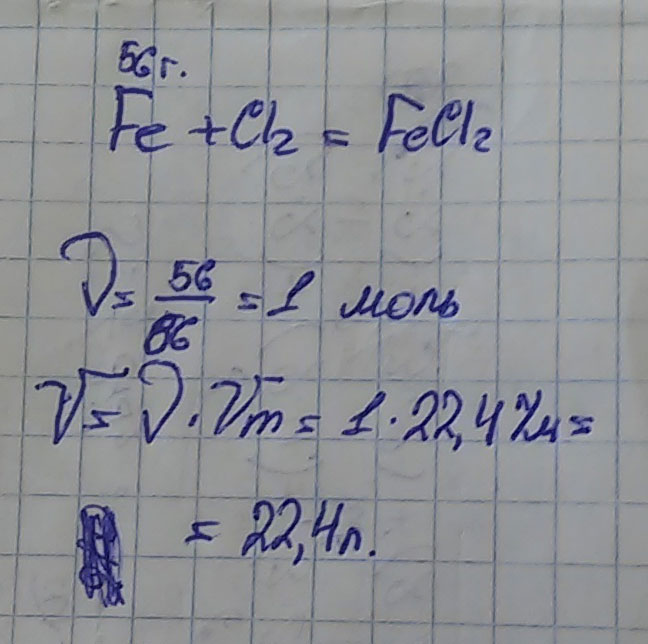 56г.
Fe + Cl₂ = FeCl₂
ν = 56/56 = 1 моль
V = ν · Vm = 1 · 22,4 л/м =
= 22,4л.